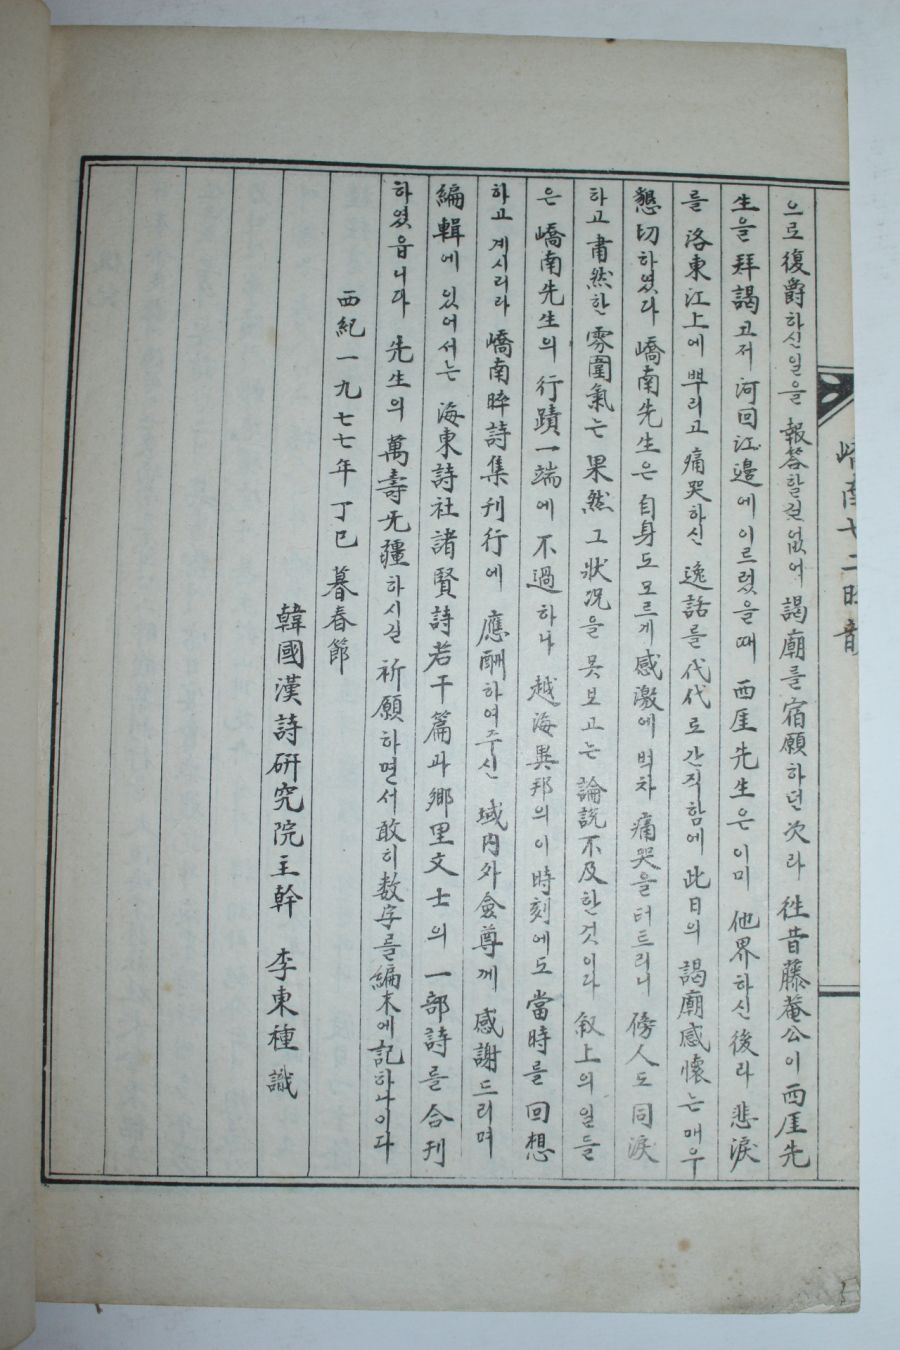 으로 復爵하신 일을 報答할 길 없어 謁廟를 宿願하던 次라 徃昔 藤菴公이 西厓先
生을 拜謁고저 河回江邊에 이르렀을 때 西厓先生은 이미 他界하신 後라 悲淚
를 洛東江上에 뿌리고 痛哭하신 逸話를 代代로 간직함에 此日의 謁廟感懷는 매우
懇切하였다 嶠南先生은 自身도 모르게 感激에 벅차 痛哭을 터트리니 傍人도 同淚
하고 肅然한 雰圍氣는 果然 그 狀况을 못보고는 論說不及한 것이다 叙上의 일들
은 嶠南先生의 行蹟一端에 不過하나 越海異邦의 이 時刻에도 當時를 回想
하고 계시리라 嶠南晬詩集 刊行에 應酬하여주신 域內外僉尊께 感謝드리며
編輯에 있어서는 海東詩社諸賢詩若干篇과 鄕里文士의 一部詩를 合刊
하였읍니다 先生의 萬壽无疆하시길 祈願하면서 敢히 数字를 編末에 記하나이다
西紀一九七七年丁巳暮春節
韓國漢詩硏究院主幹 李東種 識